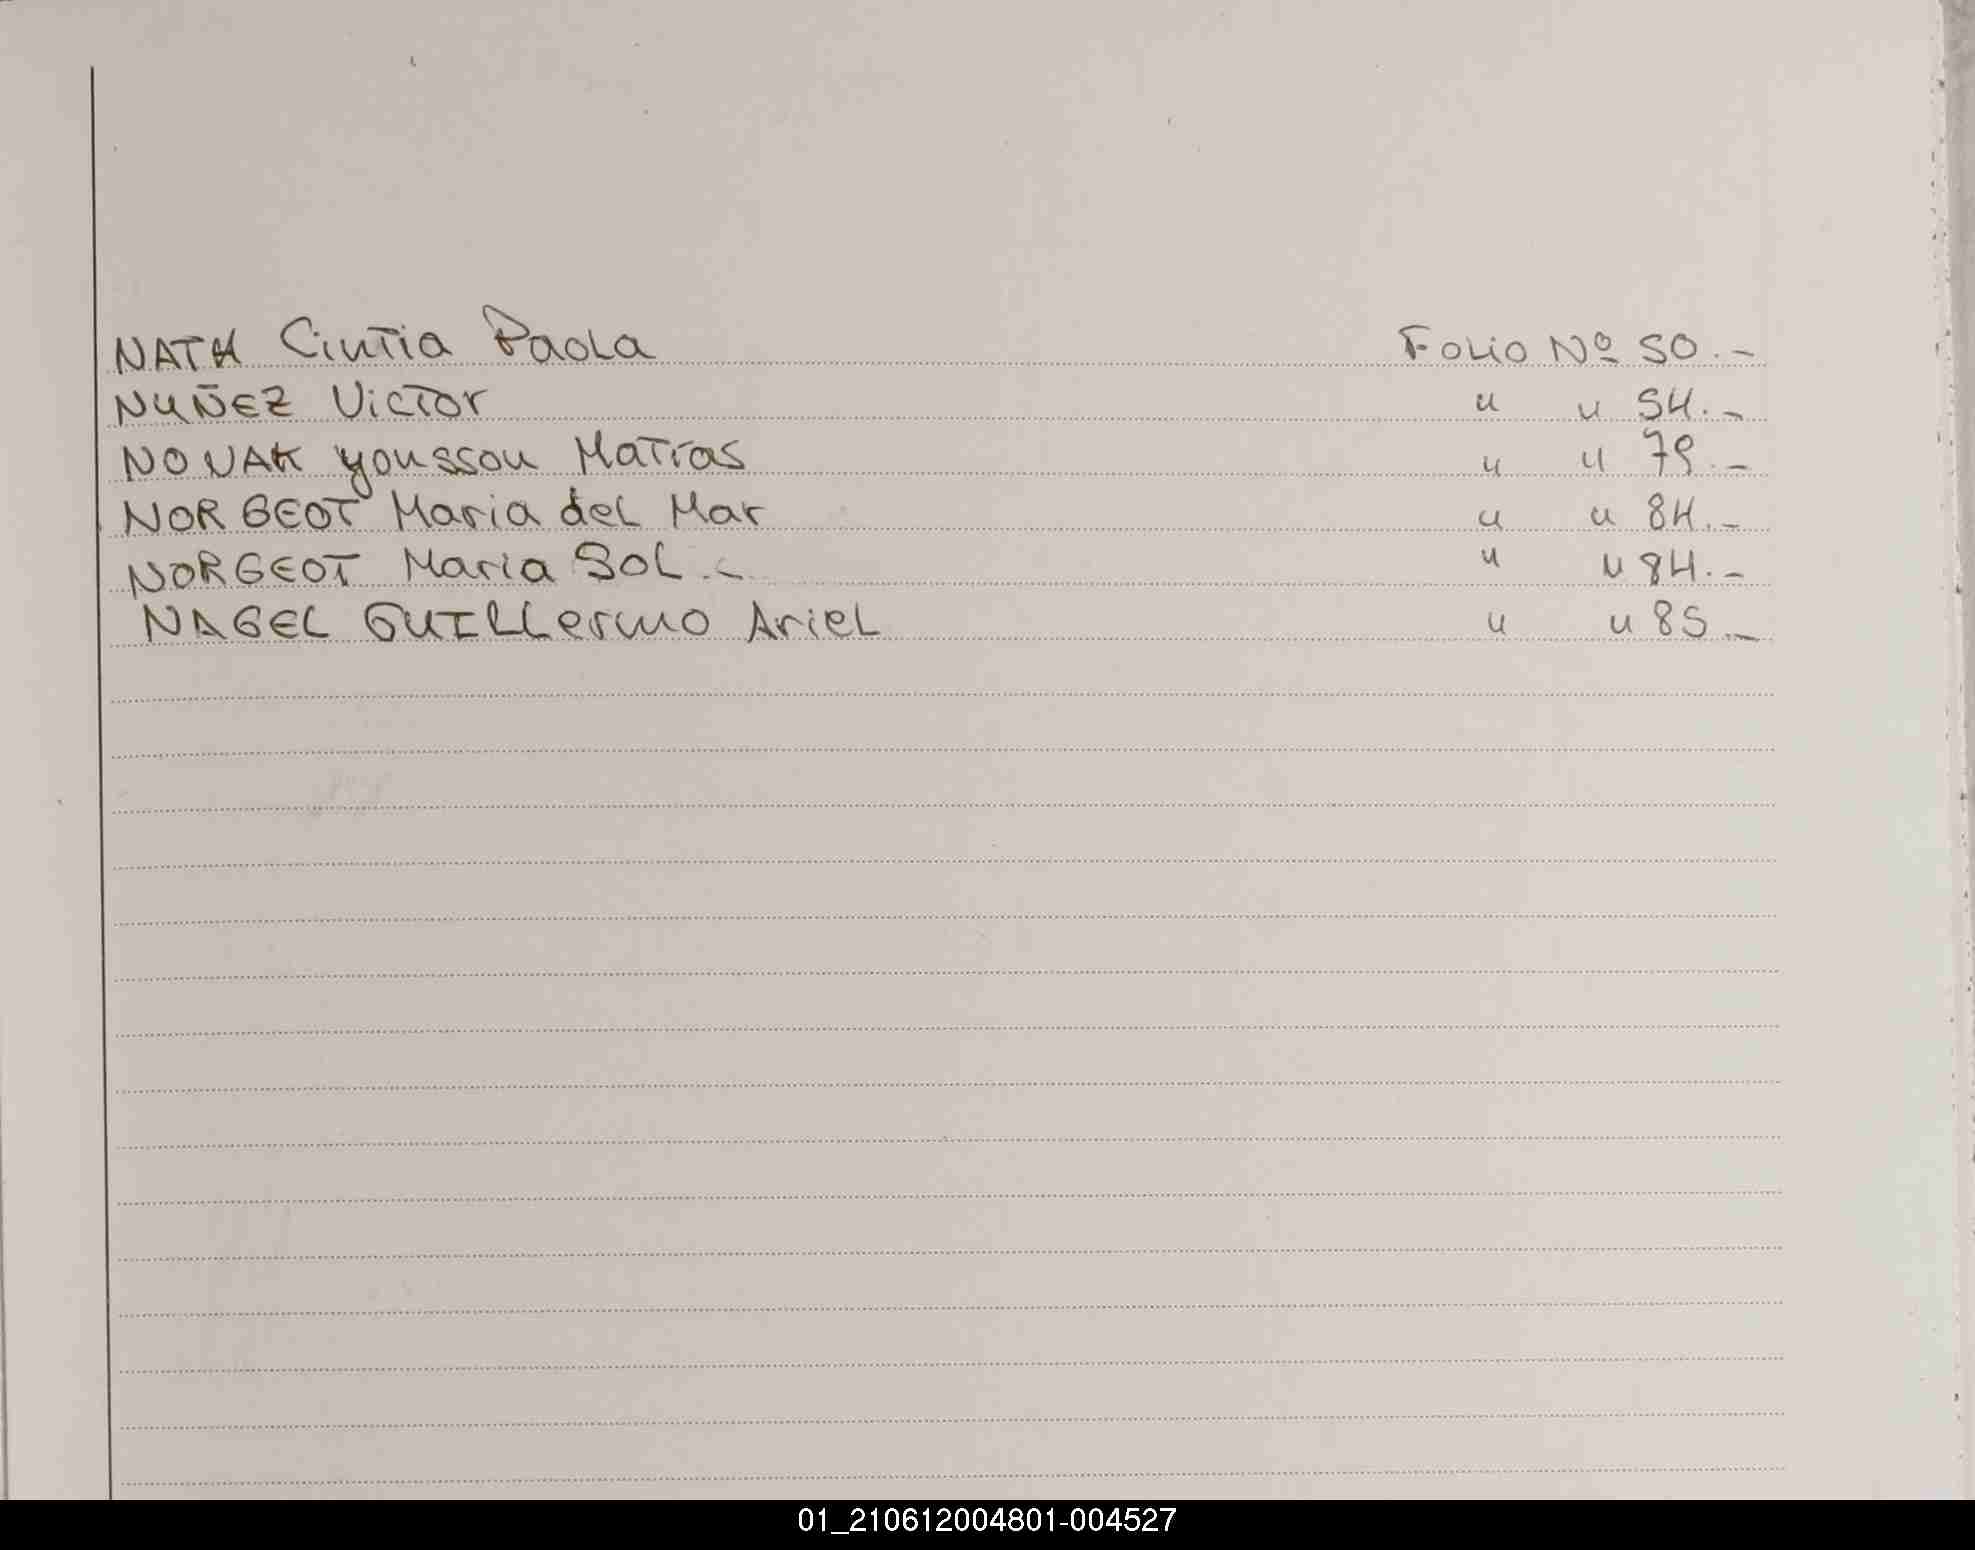 NATH Cintia Paola Folio Nº 50.-
NUÑEZ Victor " " 54.-
NOVAK Youssou Matías " " 79.-
NORGEOT Maria del Mar " " 84.-
NORGEOT Maria SOL.- " " 84.-
NAGEL GUILLermo Ariel " " 85.-
01_210612004801-004527